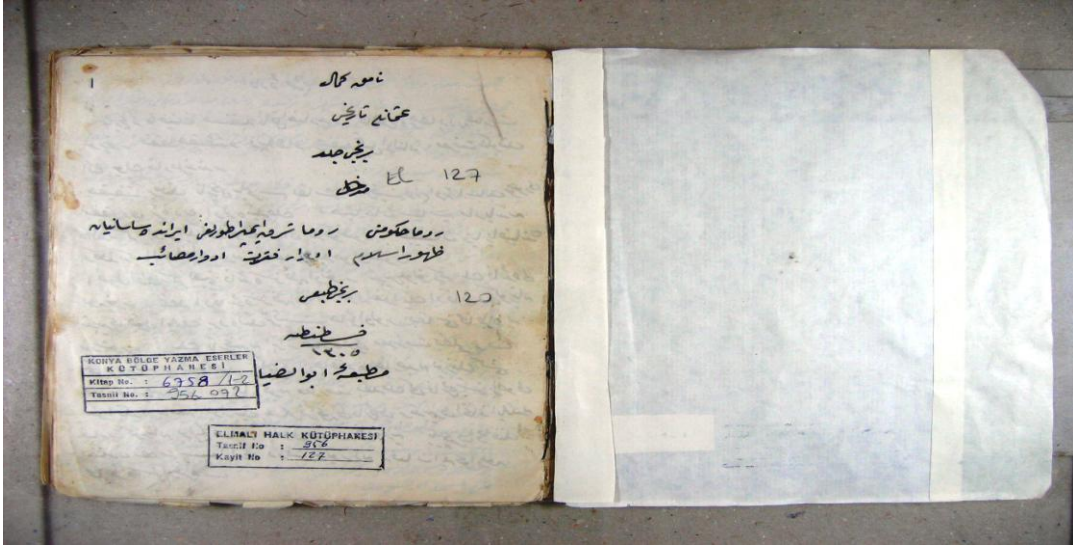 ١
نامق كمال
عثمانلى تاريخى
برنجى جلد
مدخل
127
روما حكومتى روما شرق ايمپراطورلغى ايرانده ساسانيان
ظهور اسلام ادوار فترت ادوار مصائب
برنجى طبعى
120
قسطنطنيه
١٣٠٥
مطبعۀ ابوالضيا
KONYA BÖLGE YAZMA ESERLER
KÜTÜPHANESİ
Kitap No. : 6758 /1-2
Tasnif No. : 956 092
ELMALI HALK KÜTÜPHANESİ
Tasnif No : 956
Kayıt No : 127